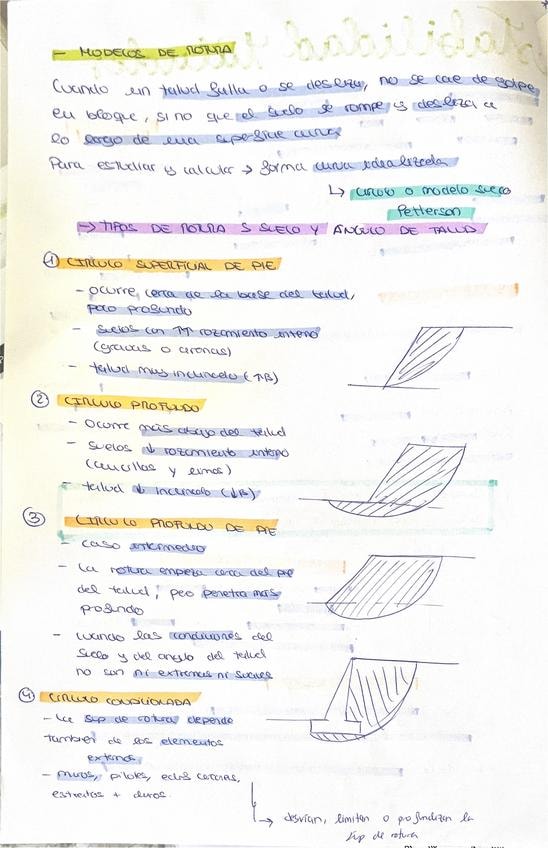 Estabilidad taludes
- MODELOS DE ROTURA
Cuando un talud falla o se desliza, no se cae de golpe
en bloque, si no que el suelo se rompe y desliza a
lo largo de una superficie curva
Para estudiar y calcular → forma curva idealizada
↳ círculo o modelo sueco
Petterson
→ TIPOS DE ROTURA S SUELO Y ÁNGULO DE TALUD
① CIRCULO SUPERFICIAL DE PIE
- ocurre cerca de la base del talud,
poco profundo
- suelos con ↑↑ rozamiento interno
(gravas o arenas)
- talud mas inclinado (↑β)
② CIRCULO PROFUNDO
- Ocurre más abajo del talud
- Suelos ↓ rozamiento interno
(arcillas y limos)
- talud ↓ inclinado (↓β)
③ CIRCULO PROFUNDO DE PIE
- caso intermedio
- La rotura empieza cerca del pie
del talud, pero penetra mas
profundo
- cuando las condiciones del
suelo y del angulo del talud
no son ni extremas ni suaves
④ CIRCULO CONDICIONADA
- La sup de rotura depende
tambien de los elementos
externos
- muros, pilotes, edos cercanos,
estratos + duros.
→ desvían, limitan o profundizan la
sup de rotura